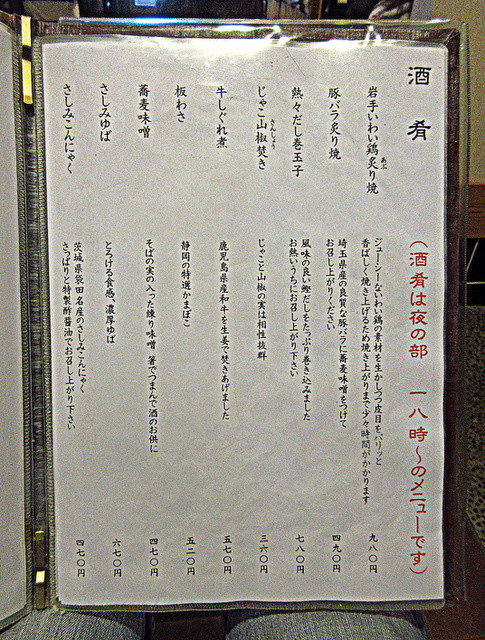 酒肴
(酒肴は夜の部 一八時～のメニューです)
岩手いわい鶏炙り焼
あぶ
ジューシーないわい鶏の素材を生かしつつ皮目をパリッと
香ばしく焼き上げるため焼き上がりまで少々時間がかかります
九八〇円
豚バラ炙り焼
埼玉県産の良質な豚バラに蕎麦味噌をつけて
お召し上がりください
四九〇円
熱々だし巻玉子
風味の良い鰹だしをたっぷり巻き込みました
お熱いうちにお召し上がり下さい
七八〇円
じゃこ山椒焚き
さんしょう
じゃこと山椒の実は相性抜群
三六〇円
牛しぐれ煮
鹿児島県産和牛を生姜で焚きあげました
五七〇円
板わさ
静岡の特選かまぼこ
五二〇円
蕎麦味噌
そばの実の入った練り味噌 箸でつまんで酒のお供に
四七〇円
さしみゆば
とろける食感、濃厚ゆば
六七〇円
さしみこんにゃく
茨城県袋田名産のさしみこんにゃく
さっぱりと特製酢醤油でお召し上がり下さい
四七〇円